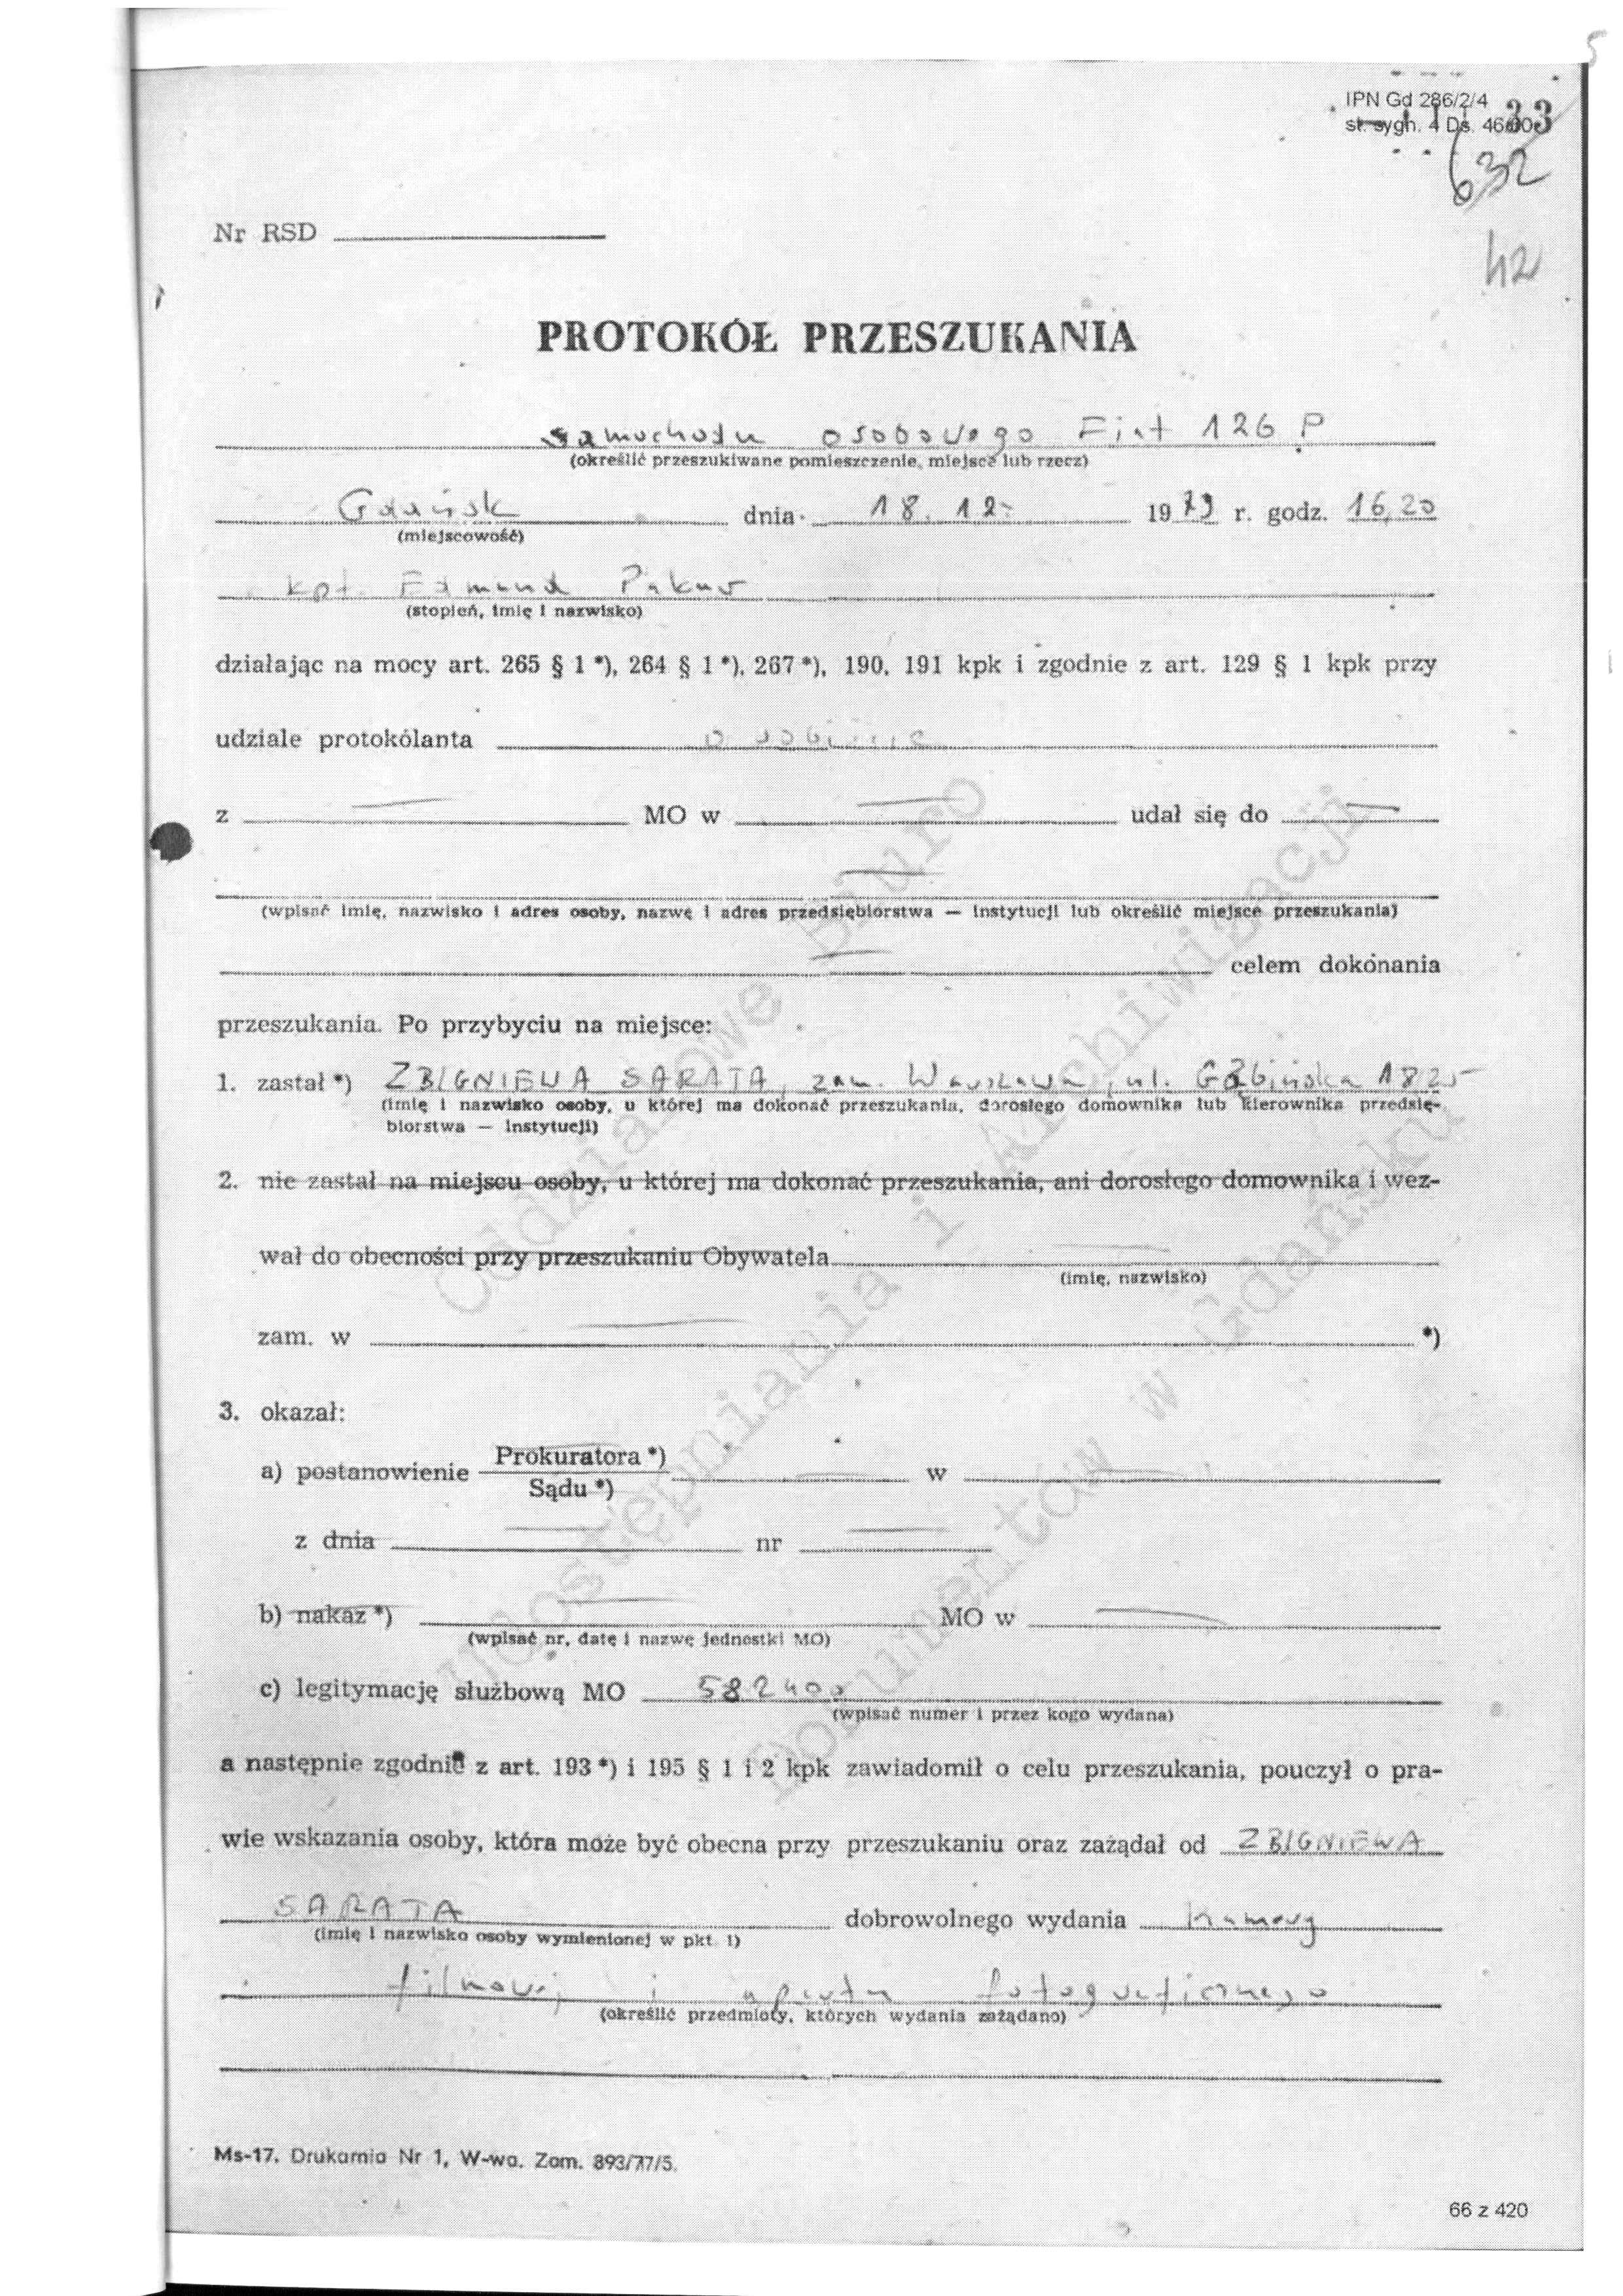 5
IPN Gd 286/2/4
st. sygn. 4 Ds. 46/80
33
632
42
Nr RSD
PROTOKÓŁ PRZESZUKANIA
samochodu osobowego Fiat 126 P
(określić przeszukiwane pomieszczenie, miejsce lub rzecz)
Gdańsk dnia 18. 12. 1979 r. godz. 16,20
(miejscowość)
kpt. Edmund
(stopień, imię i nazwisko)
działając na mocy art. 265 § 1 *), 264 § 1 *), 267 *), 190, 191 kpk i zgodnie z art. 129 § 1 kpk przy
udziale protokólanta osobiście
z — MO w — udał się do —
—
(wpisać imię, nazwisko i adres osoby, nazwę i adres przedsiębiorstwa — instytucji lub określić miejsce przeszukania)
— celem dokonania
przeszukania. Po przybyciu na miejsce:
1. zastał *) ZBIGNIEWA SARATA, zam. Warszawa, ul. Gąbińska
(imię i nazwisko osoby, u której ma dokonać przeszukania, dorosłego domownika lub kierownika przedsię-
biorstwa — instytucji)
2. nie zastał na miejscu osoby, u której ma dokonać przeszukania, ani dorosłego domownika i wez-
wał do obecności przy przeszukaniu Obywatela —
(imię, nazwisko)
zam. w — *)
3. okazał:
a) postanowienie Prokuratora *) — w —
Sądu *)
z dnia — nr —
b) nakaz *) — MO w —
(wpisać nr, datę i nazwę jednostki MO)
c) legitymację służbową MO 582400
(wpisać numer i przez kogo wydana)
a następnie zgodnie z art. 193 *) i 195 § 1 i 2 kpk zawiadomił o celu przeszukania, pouczył o pra-
wie wskazania osoby, która może być obecna przy przeszukaniu oraz zażądał od ZBIGNIEWA
SARATA dobrowolnego wydania kamery
(imię i nazwisko osoby wymienionej w pkt 1)
filmowej i aparatu fotograficznego
(określić przedmioty, których wydania zażądano)
Ms-17. Drukarnia Nr 1, W-wa. Zam. 893/77/5.
66 z 420
Oddziałowe Biuro
Udostępniania i Archiwizacji
Dokumentów w Gdańsku